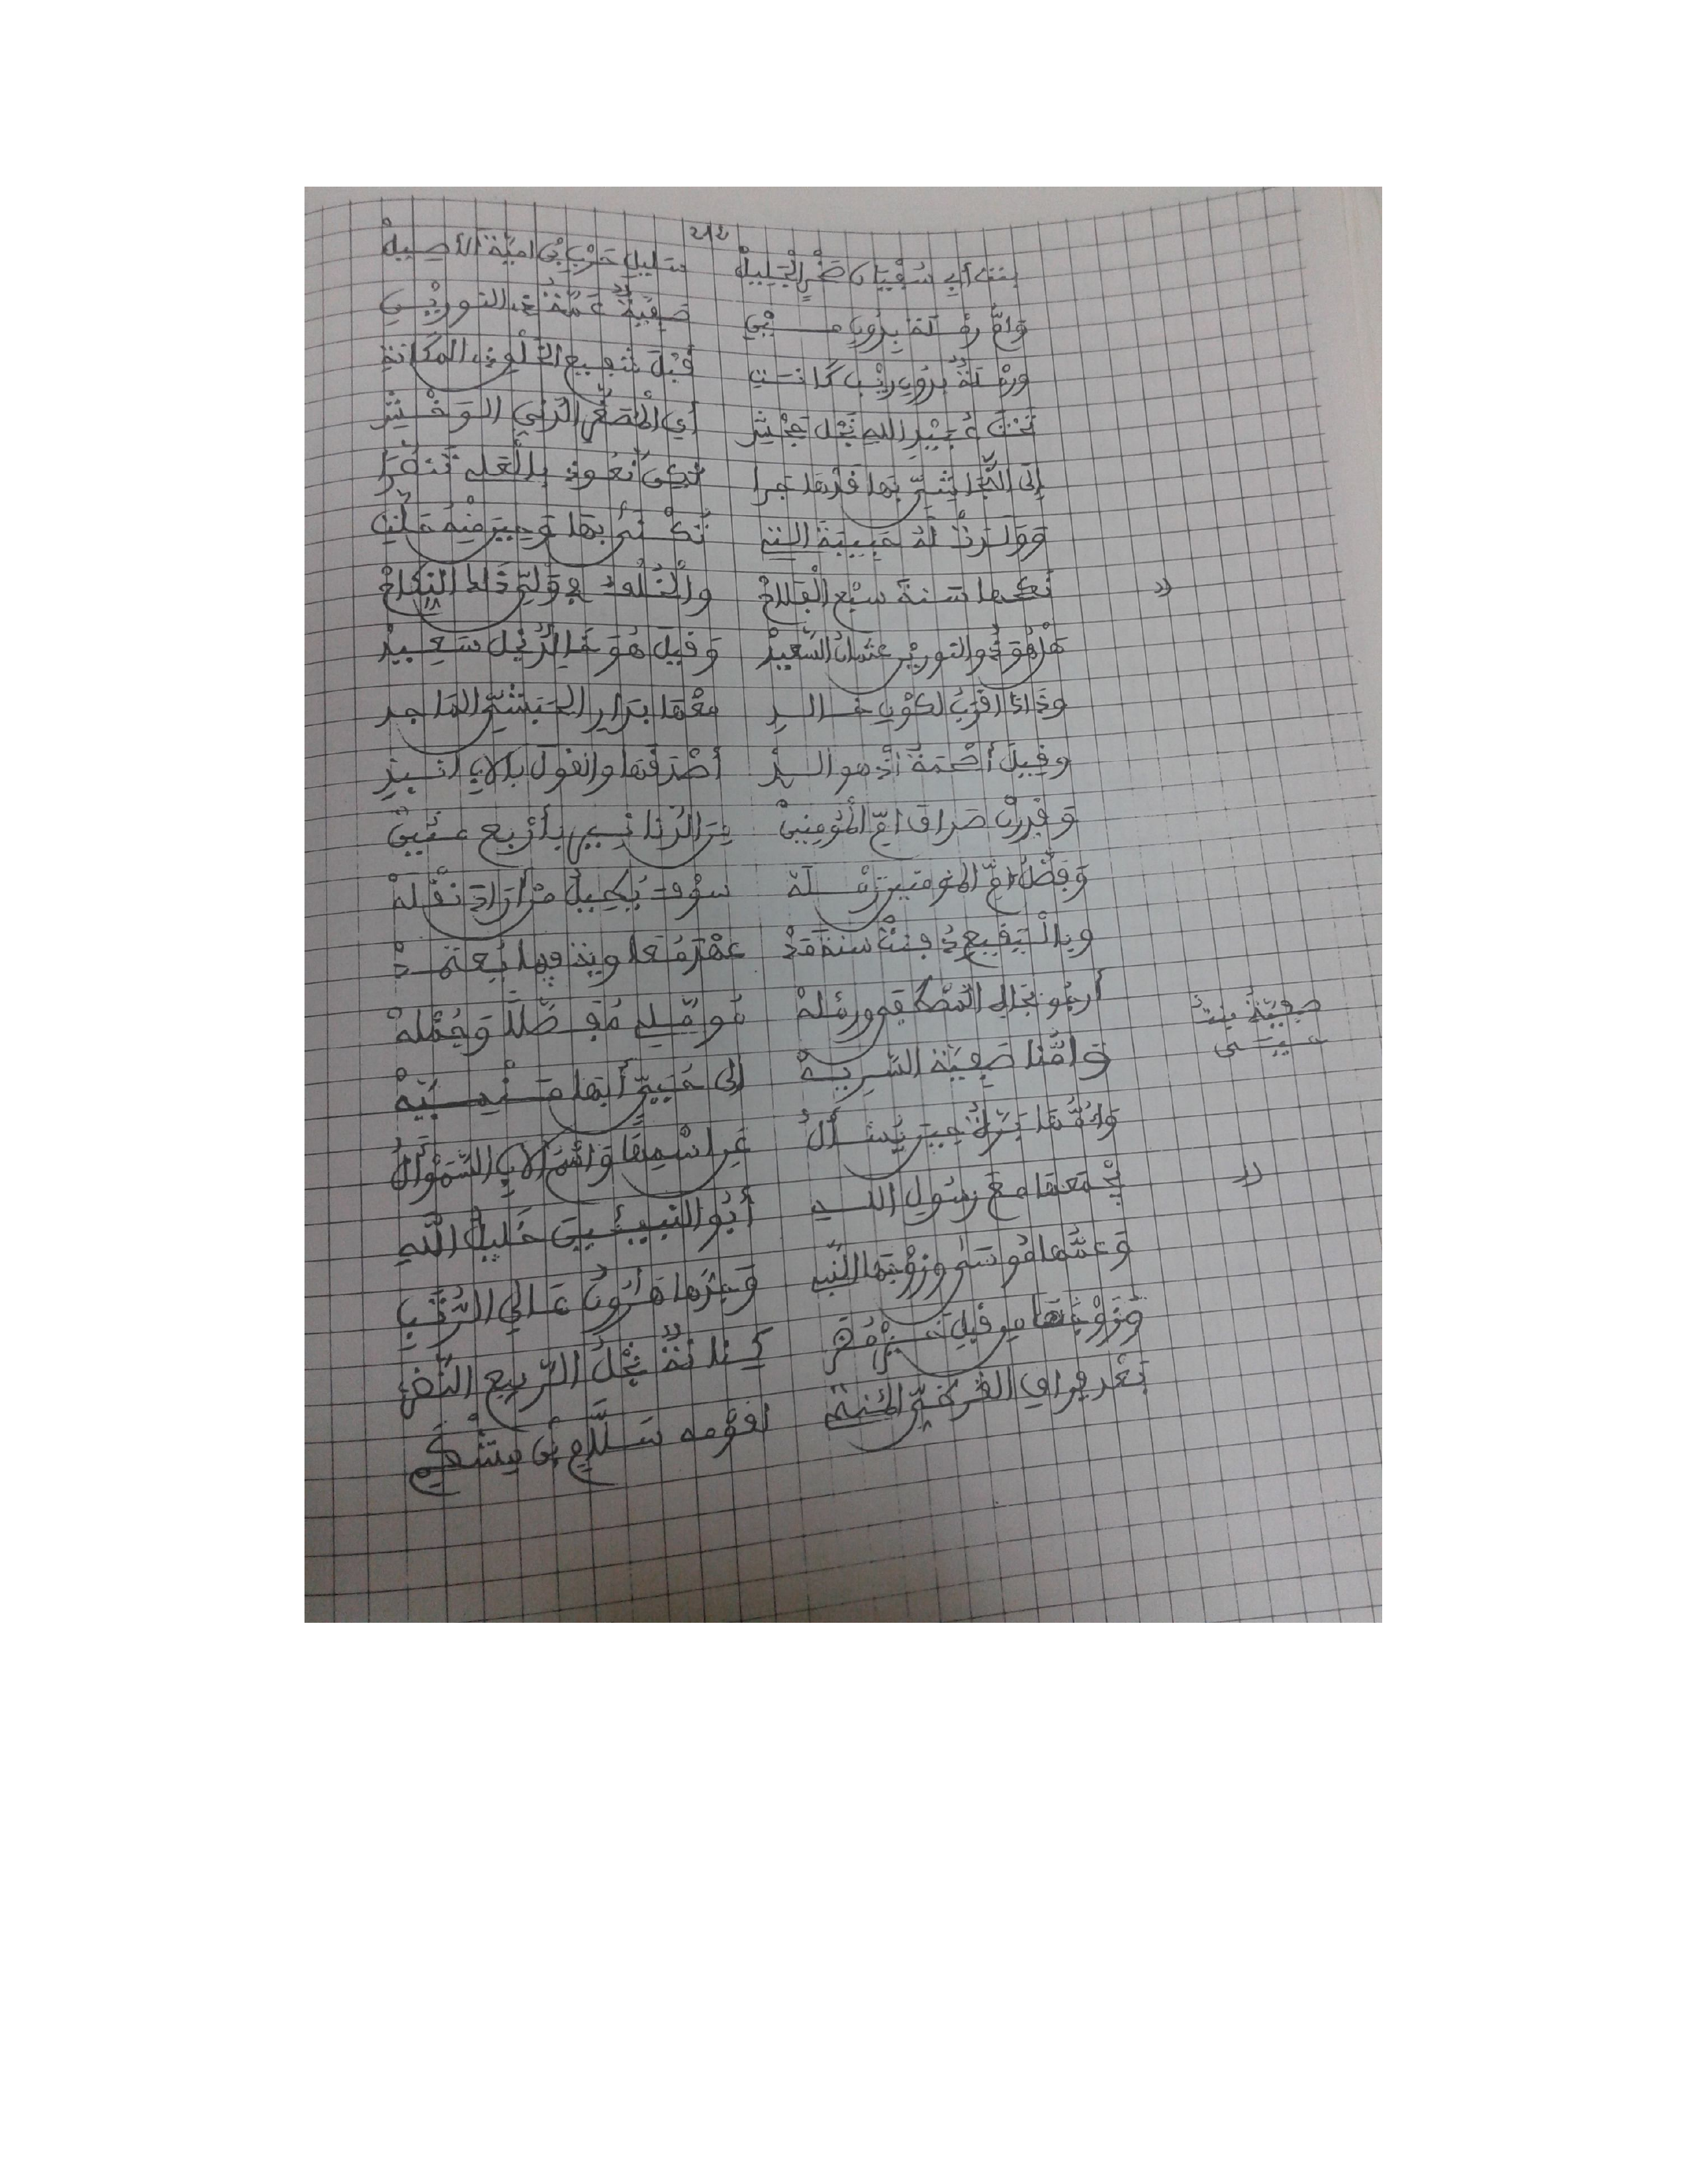 212
بنت أبي سفيان صخر الجليل سليل حرب بن امية الأصيل
وام رملة بدون مين صفية عمة ذي النورين
ورملة بدون ريب كانت قبل شفيع الخلق ذي المكانة
تحت عبيد الله نجل جحش أي المصغر الدني الوخش
إلى النجاشي بها قدها جرا لكن نعوذ بالعلي تنصرا
وولدت له حبيبة التي تكنى بها وحين منه حلت
نكحها سنة سبع الفلاح والخلف في ولي ذاك النكاح
هل هو ذو النورين عثمان السعيد وقيل هو خالد نجل سعيد
وذاك اقرب لكون خالد معها بدار الحبشي الماجد
وقيل أصحمة أذ هو الذ أصدقها والقول بالاب انبذ
وقدرن صداق ام المؤمنين من الدنانير بأربع مئين
وفضل ام المؤمنين رملة سوف يحيل من أراد نقله
وبالبقيع دفنت سنة مد عهد معاوية فيما يعتمد
أرجو بجاه المصطفى ورمله مؤملي مفصلا وجمله
وامنا صفية السرية إلى حيي أبها منميه
وامها برة حين يسأل عن اسمها واسم الاب السموأل
يجمعها مع رسول الله أبو النبيئين خليل الله
وعمها موسى وزوجها النبي وجدها هارون عالي الرتب
وزوجها من قبل خير مضر كنانة نجل الربيع النضر
بعد فراق القرظي المنتمي لقومه سلام بن مشكم
صفية بنت حيي